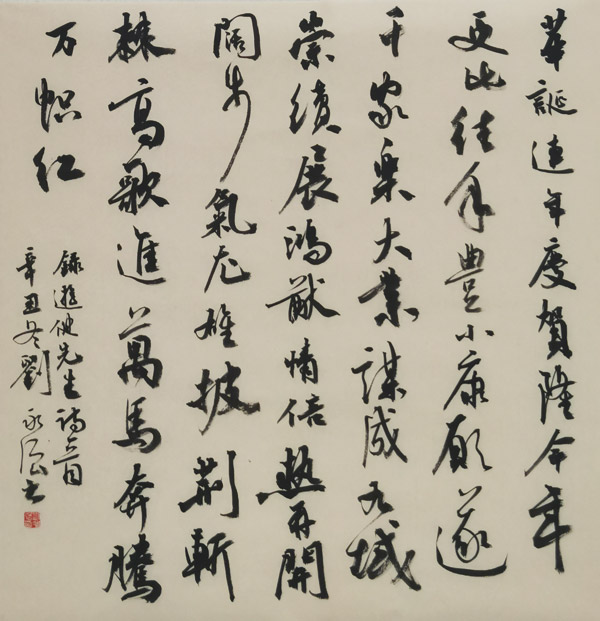 華誕連年慶賀隆今年
更比往年豊小康願遂
千家樂大業謀成九域
崇績展鴻猷情倍熱再開
闊步氣尤雄披荆斬
棘高歌進萬馬奔騰
万幟红
錄遊健先生詩一首
辛丑冬劉永